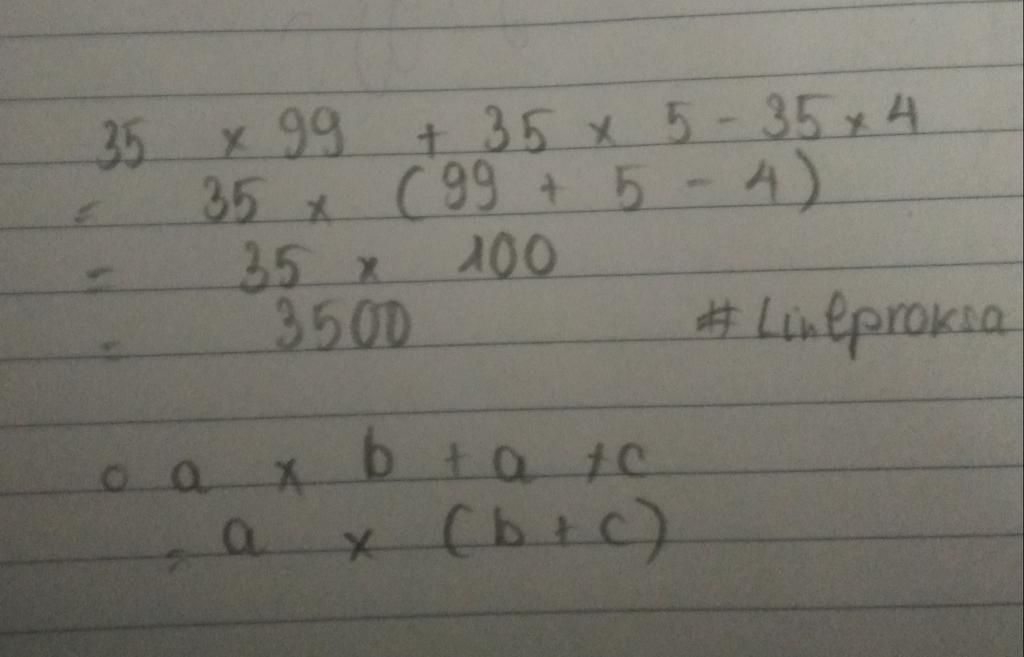 35 × 99 + 35 × 5 - 35 × 4
= 35 × (99 + 5 - 4)
= 35 × 100
= 3500 #Lineproksa
○ a × b + a × c
= a × (b + c)